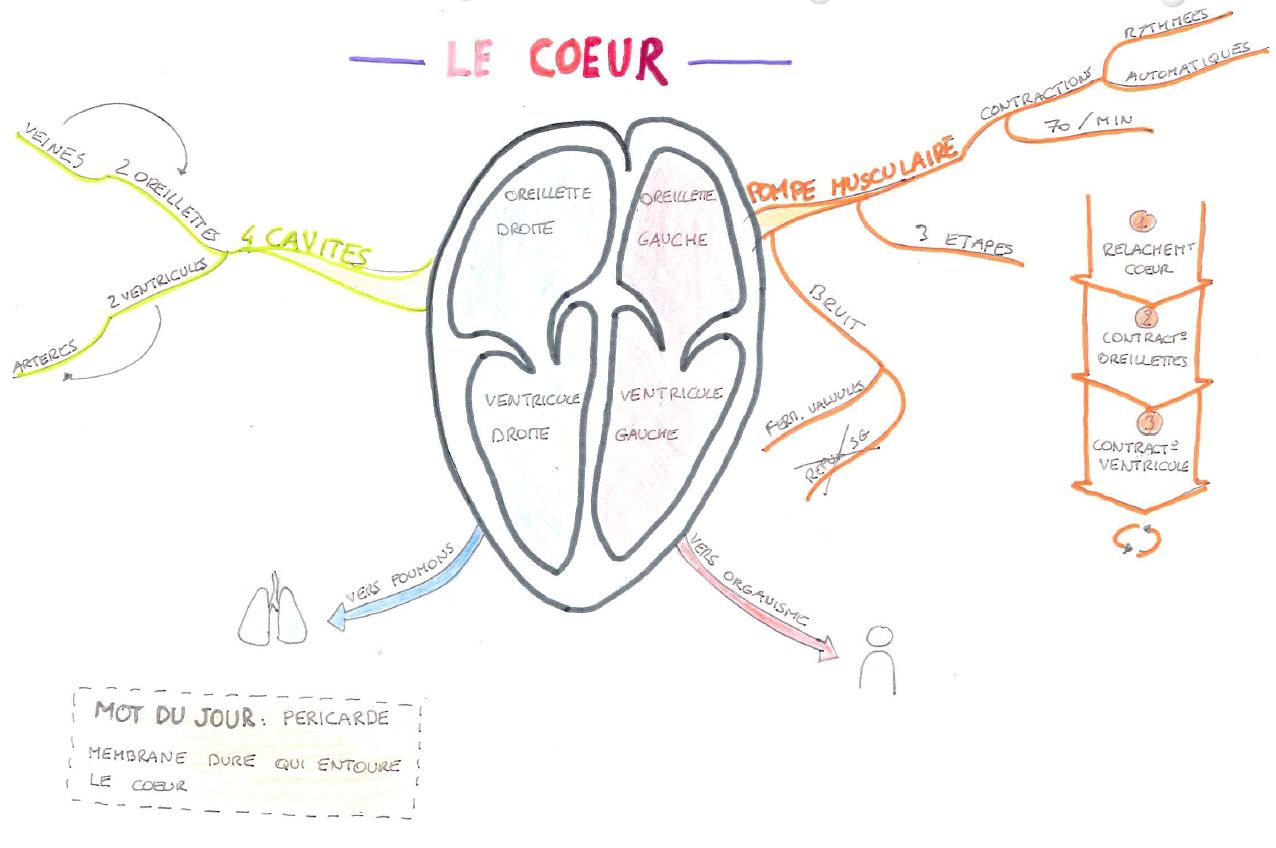 LE COEUR
VEINES
2 OREILLETTES
4 CAVITES
2 VENTRICULES
ARTERES
OREILLETTE
DROITE
OREILLETTE
GAUCHE
VENTRICULE
DROITE
VENTRICULE
GAUCHE
POMPE MUSCULAIRE
CONTRACTIONS
RYTHMEES
AUTOMATIQUES
70 / MIN
3 ETAPES
BRUIT
FERM. VALVULES
SG
1
RELACHEMT
COEUR
2
CONTRACTº
OREILLETTES
3
CONTRACTº
VENTRICULE
VERS POUMONS
VERS ORGANISME
MOT DU JOUR: PERICARDE
MEMBRANE DURE QUI ENTOURE
LE COEUR